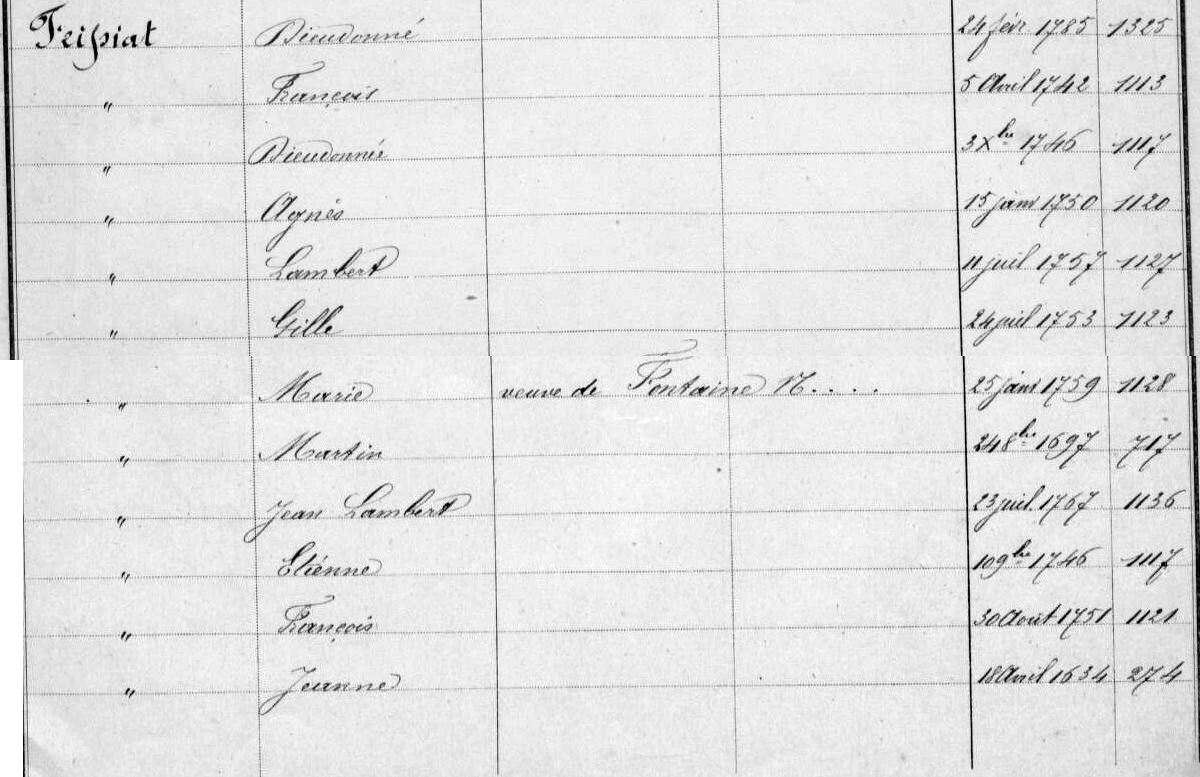 Feissiat Dieudonné 24 fév. 1785 1325
" François 5 Avril 1742 1113
" Dieudonnée 3 Xbre 1746 1117
" Agnès 15 janv 1750 1120
" Lambert 11 juil 1757 1127
" Gille 24 juil 1753 1123
" Marie veuve de Fontaine N.... 25 janv 1759 1128
" Martin 24 8bre 1697 717
" Jean Lambert 23 juil. 1767 1136
" Etienne 10 9bre 1746 1117
" François 30 Aout 1751 1121
" Jeanne 18 Avril 1634 274